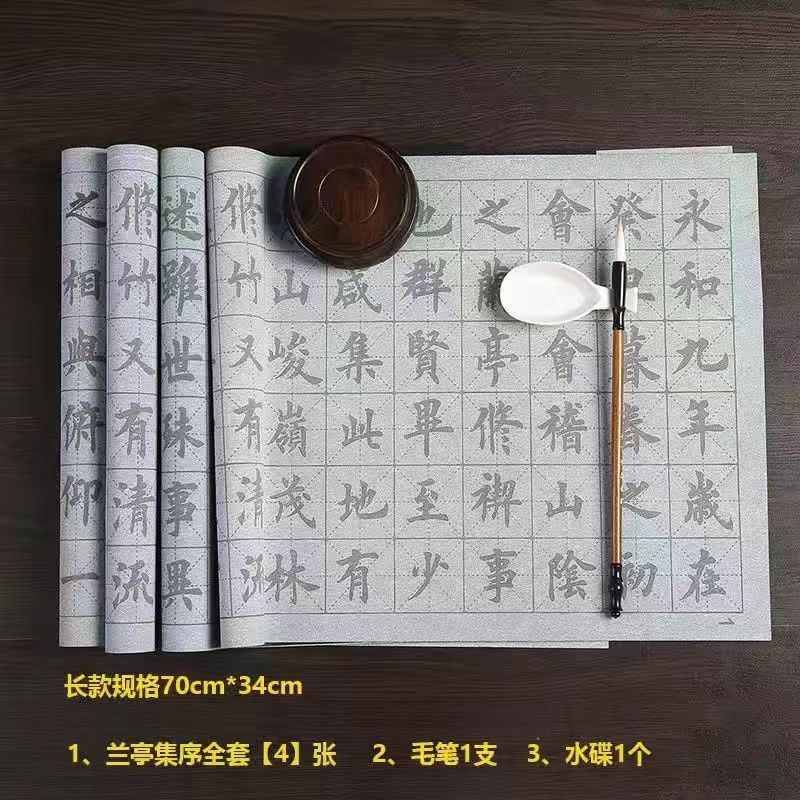 永和九年歲在
癸丑暮春之初
會會稽山陰
之蘭亭脩禊事
也群賢畢至少
咸集此地有
山峻嶺茂林
脩竹又有清流
迷雖世殊事異
脩竹又有清流
之相與俯仰一
长款规格70cm*34cm
1、兰亭集序全套【4】张 2、毛笔1支 3、水碟1个